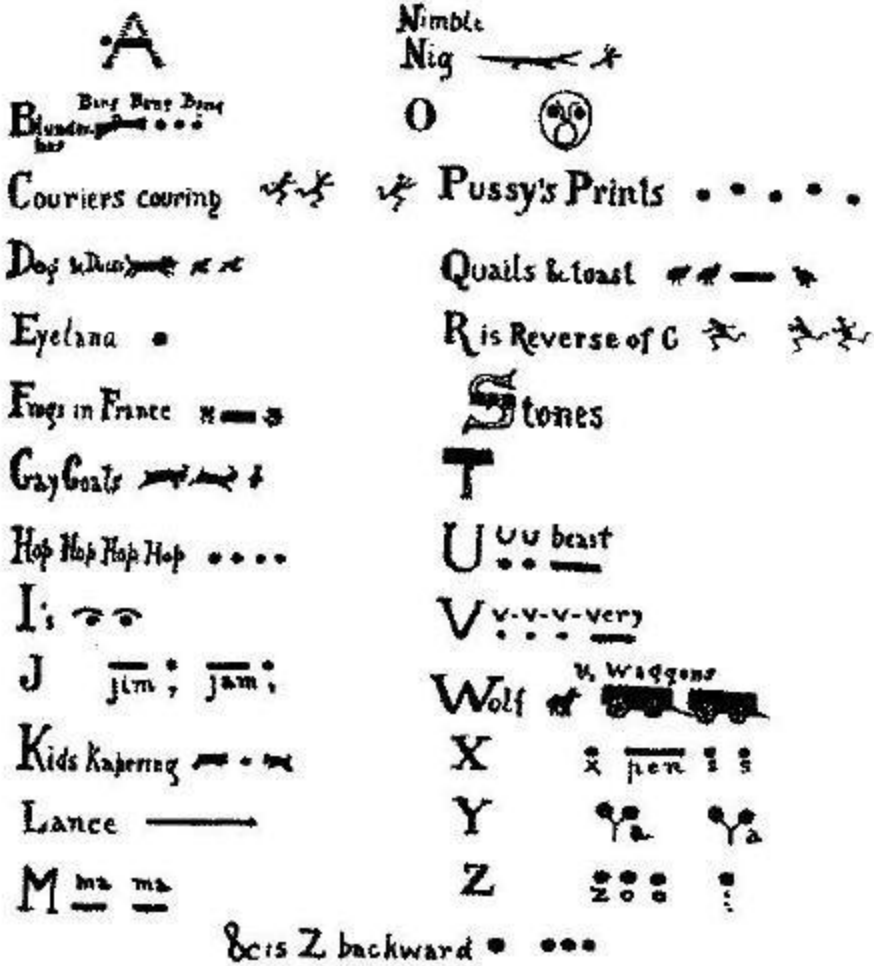 A
Bang Bang Bang
Blunder-
bus
Couriers couring
Dog & Ducs
Eyelana
Frogs in France
Gay Goats
Hop Hop Hop Hop
I's
J jim; jam;
Kids Kapering
Lance
M ma ma
Nimble
Nig
O
Pussy's Prints
Quails & toast
R is Reverse of C
Stones
T
U U U beast
V v-v-v-very
Wolf
Waggons
X x pen s s
Y Ya Ya
Z zoo
&c is Z backward